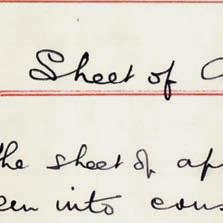 Sheet of
the sheet of ap
een into cons